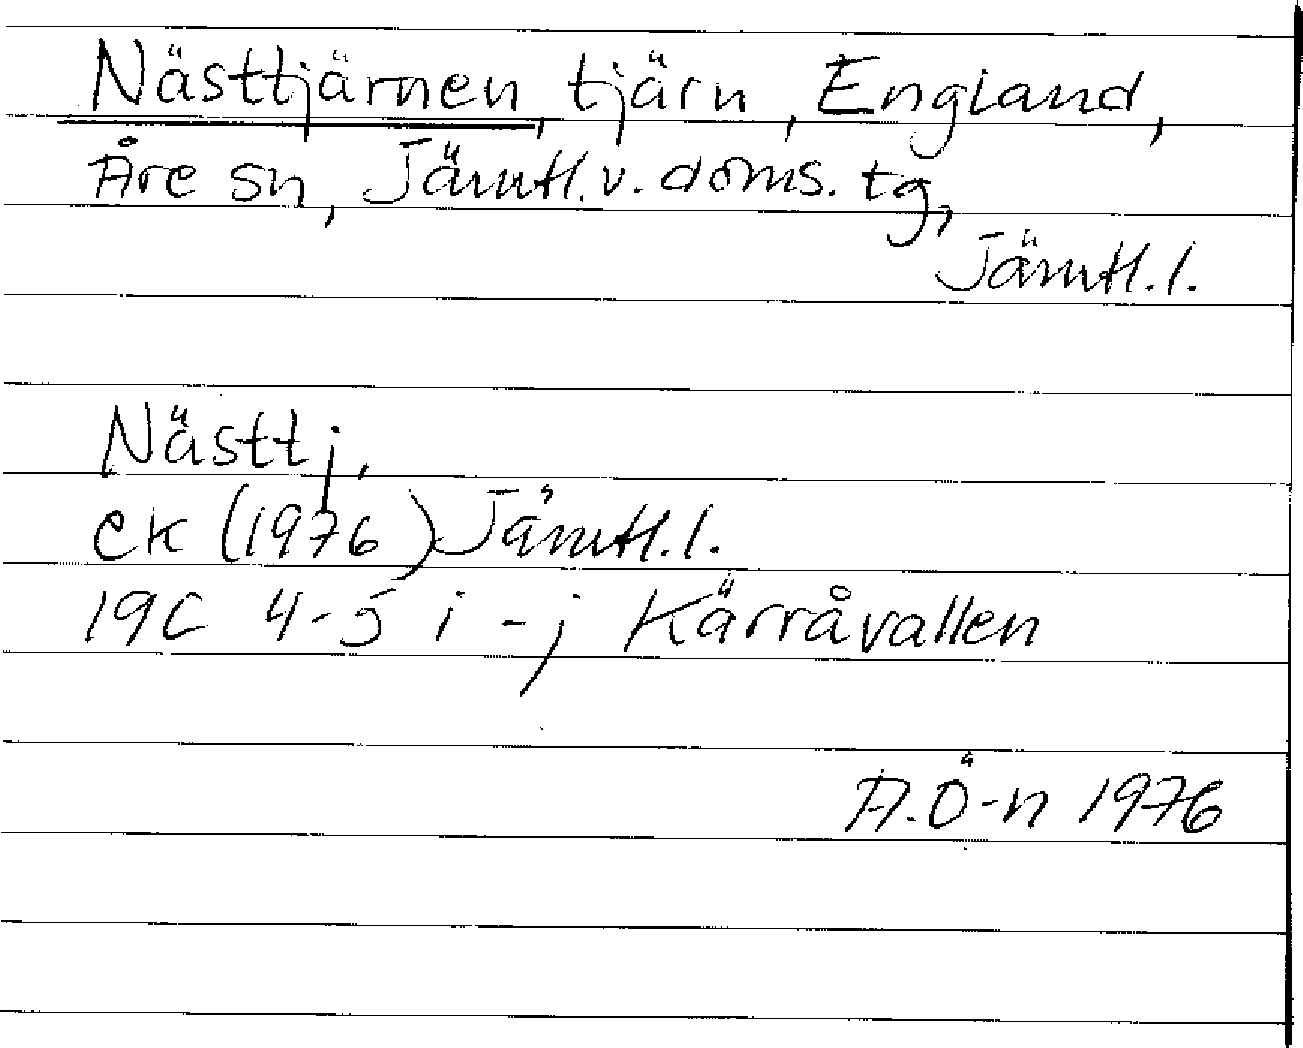 Nästtjärnen, tjärn, England,
Åre sn, Jämtl. v. doms. tg,
Jämtl. l.
Nästtj.
ek (1976) Jämtl. l.
19C 4-5 i-j Kärråvallen
A. Ö-n 1976